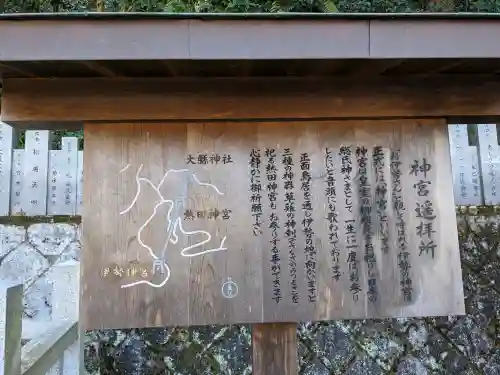 神宮遥拝所
「お伊勢さん」と親しく呼ばれる伊勢の神宮は
正式には「神宮」といいます
神宮は皇室の御祖神をお祀りし日本の
総氏神さまとして「一生に一度はお参り
したい」と言われております
正面鳥居を通し伊勢の地に向かいますと
三種の神器 草薙の神剣
祀る熱田神宮も拝する事ができます
心静かに御祈願下さい
大縣神社
熱田神宮
伊勢神宮